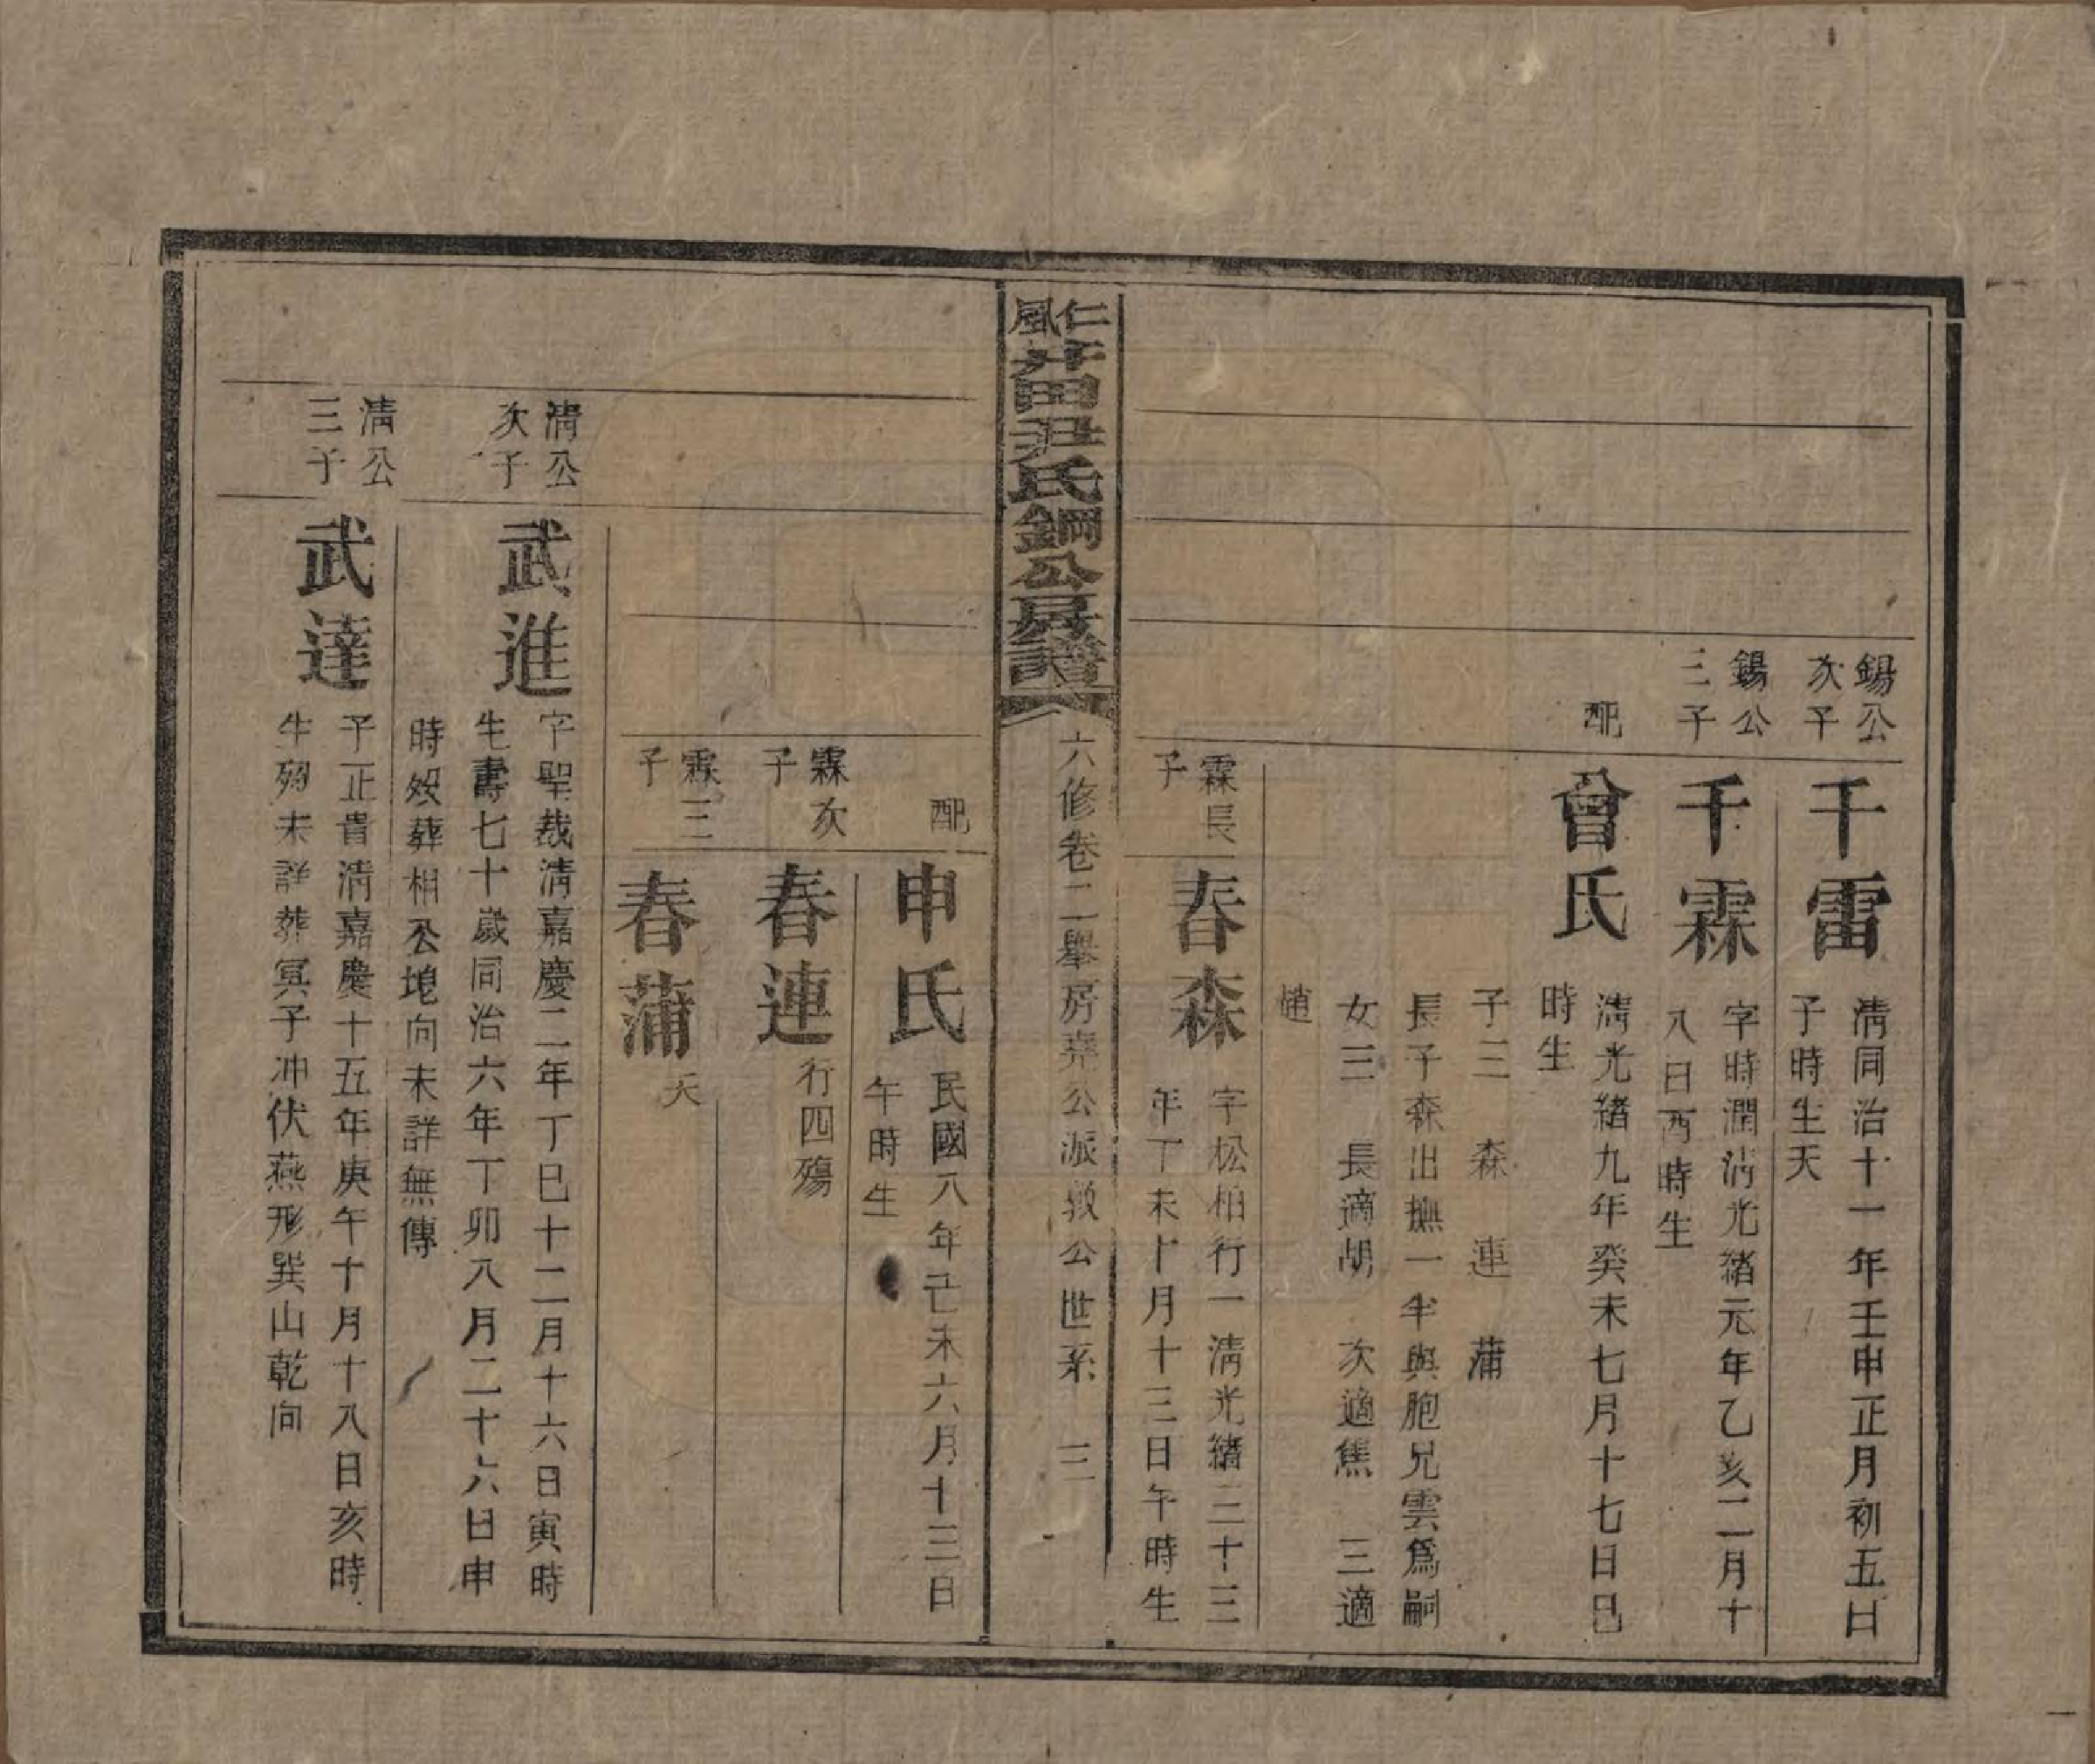 錫公
次子
千雷
清同治十一年壬申正月初五日
子時生夭
錫公
三子
千霖
字時潤清光緒元年乙亥二月十
八日酉時生
配
曾氏
清光緒九年癸未七月十七日巳
時生
子三 森 連 蒲
長子森出撫一半與胞兄雲爲嗣
女三 長適胡 次適焦 三適
趙
霖長
子
春森
字松柏行一清光緒三十三
年丁未十月十三日午時生
仁風
芹田尹氏鋼公房譜
六修卷二舉房堯公派 公世系 三
配
申氏
民國八年己未六月十三日
午時生
霖次
子
春連
行四殤
霖三
子
春蒲
夭
清公
次子
武進
字聖哉清嘉慶二年丁巳十二月十六日寅時
生壽七十歲同治六年丁卯八月二十六日申
時殁葬相公塊向未詳無傳
清公
三子
武達
字正貴清嘉慶十五年庚午十月十八日亥時
生殁未詳葬冥子冲伏燕形巽山乾向